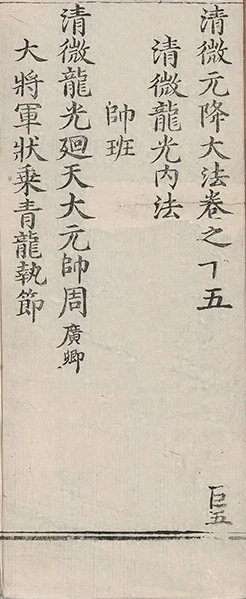 清微元降大法卷之丁五
巨五
清微龍光內法
帥班
清微龍光廻天大元帥周廣卿
大將軍狀乘青龍執節